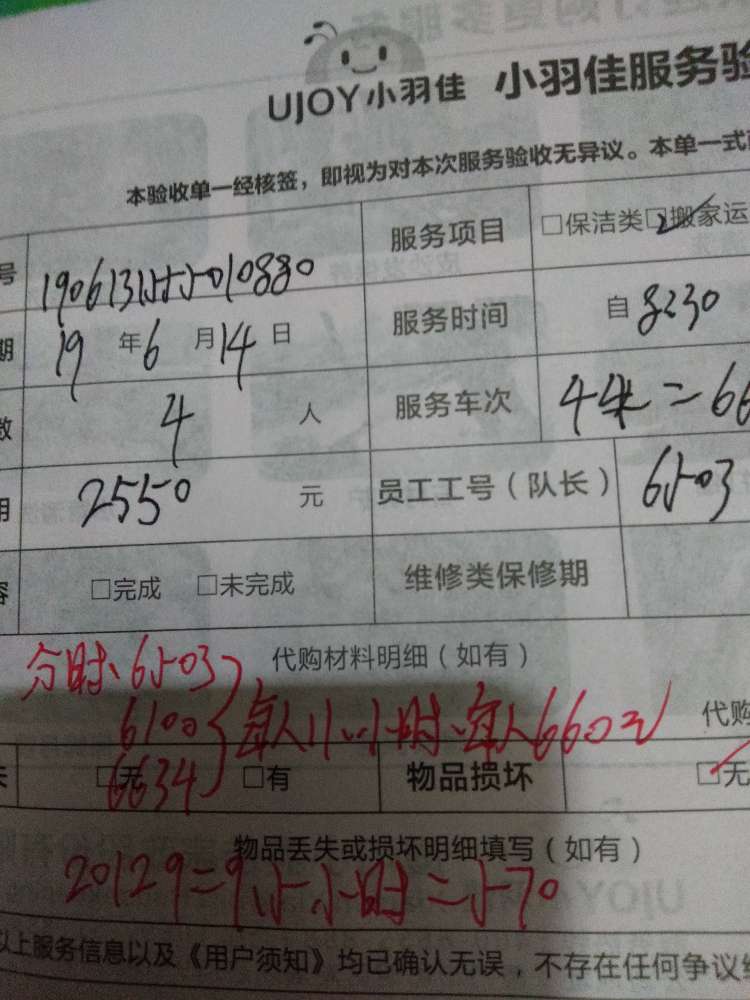 UJOY小羽佳 小羽佳服务验
本验收单一经核签，即视为对本次服务验收无异议。本单一式
号 190613155010880 服务项目 □保洁类 □搬家运
期 19年6月14日 服务时间 自 8:30
数 4 人 服务车次 4米=66
用 2550 元 员工工号（队长） 6503
容 □完成 □未完成 维修类保修期
分时、6503 代购材料明细（如有）
6100 每人11小时.每人660元 代购
失 □无 6634 □有 物品损坏 □无
物品丢失或损坏明细填写（如有）
20129=9.5小时=570
以上服务信息以及《用户须知》均已确认无误，不存在任何争议